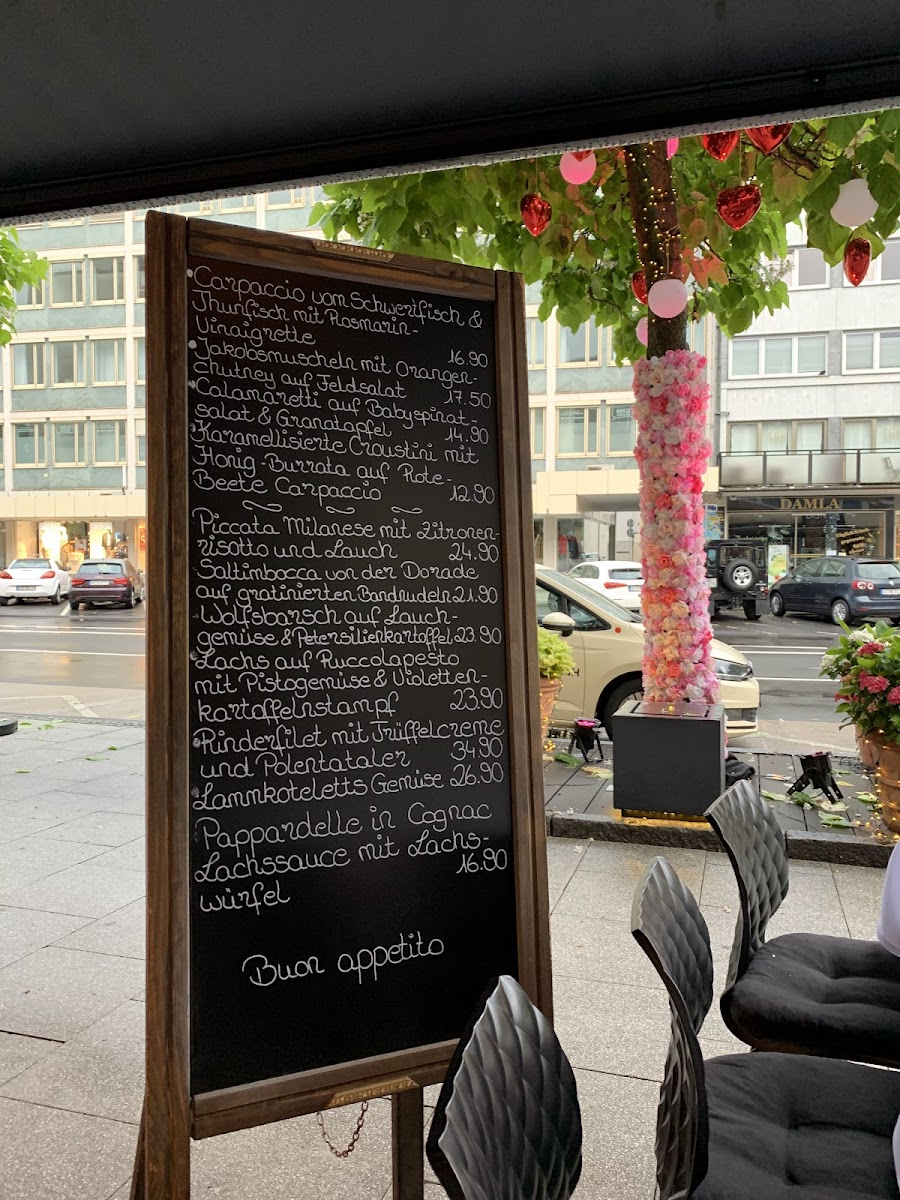 Carpaccio vom Schwertfisch &
Thunfisch mit Rosmarin-
Vinaigrette 16.90
Jakobsmuscheln mit Orangen-
chutney auf Feldsalat 17.50
Calamaretti auf Babyspinat-
salat & Granatapfel 14.90
Karamellisierte Croustini mit
Honig-Burrata auf Rote-
Beete Carpaccio 12.90
Piccata Milanese mit Zitronen-
risotto und Lauch 24.90
Saltimbocca von der Dorade
auf gratinierten Bandnudeln 21.90
Wolfsbarsch auf Lauch-
gemüse & Petersilienkartoffel 23.90
Lachs auf Ruccolapesto
mit Pistogemüse & Violetten-
kartoffelnstampf 23.90
Rinderfilet mit Trüffelcreme
und Polentataler 34.90
Lammkoteletts Gemüse 26.90
Pappardelle in Cognac
Lachssauce mit Lachs-
würfel 16.90
Buon appetito
DAMLA